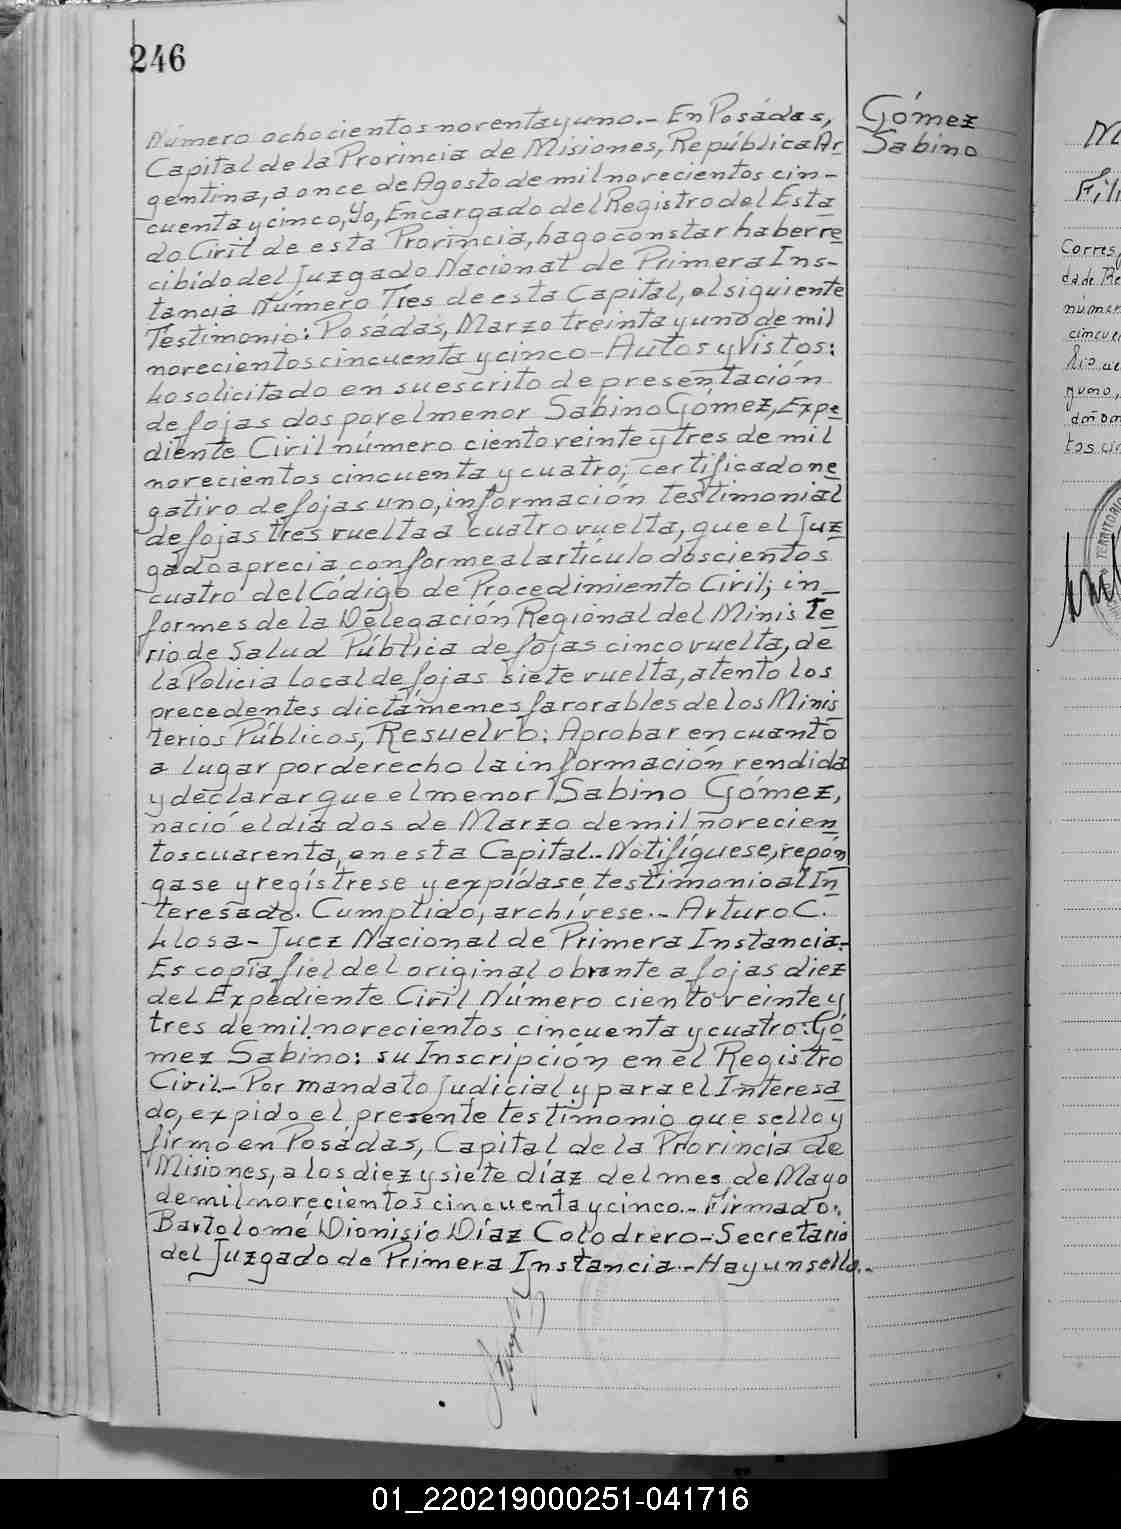 246
Gómez
Sabino
Número ochocientos noventa y uno.- En Posádas,
Capital de la Provincia de Misiones, República Ar
gentina, a once de Agosto de mil novecientos cin-
cuenta y cinco, Yo, Encargado del Registro del Esta
do Civil de esta Provincia, hago constar haber re
cibído del Juzgado Nacional de Primera Ins-
tancia Número Tres de esta Capital, el siguiente
Téstimonio: Posádas, Marzo treinta y uno de mil
novecientos cincuenta y cinco - Autos y Vistos:
Lo solicitado en su escrito de presentación
de fojas dos por el menor Sabino Gómez, Expe
diente Civil número ciento veinte y tres de mil
novecientos cincuenta y cuatro; certificado ne
gativo de fojas uno, información testimonial
de fojas tres vuelta a cuatro vuelta, que el Juz
gado aprecia conforme al artículo doscientos
cuatro del Código de Procedimiento Civil; in_
formes de la Delegación Regional del Ministe
rio de Salud Pública de fojas cinco vuelta, de
la Policia local de fojas siete vuelta, atento los
precedentes dictámenes favorables de los Minis
terios Públicos, Resuelvo: Aprobar en cuanto
a lugar por derecho la información rendida
y declarar que el menor Sabino Gómez,
nació el día dos de Marzo de mil novecien
tos cuarenta, en esta Capital.. Notifíquese, repón
gase y regístrese y expídase testimonio al In
teresado. Cumplido, archívese.- Arturo C.
Llosa - Juez Nacional de Primera Instancia.-
Es copia fiel del original obrante a fojas diez
del Expediente Civil Número ciento veinte y
tres de mil novecientos cincuenta y cuatro: Gó
mez Sabino: su Inscripción en el Registro
Civil - Por mandato Judicial y para el Interesa
do, expido el presente testimonio que sello y
firmo en Posádas, Capital de la Provincia de
Misiones, a los diez y siete díaz del mes de Mayo
de mil novecientos cincuenta y cinco.- Firmado:
Bartolomé Dionisio Díaz Colodrero - Secretario
del Juzgado de Primera Instancia - Hay un sello.-
Corres
da de Re
númer
cincue
tos ci
TERRITORIO
01_220219000251-041716